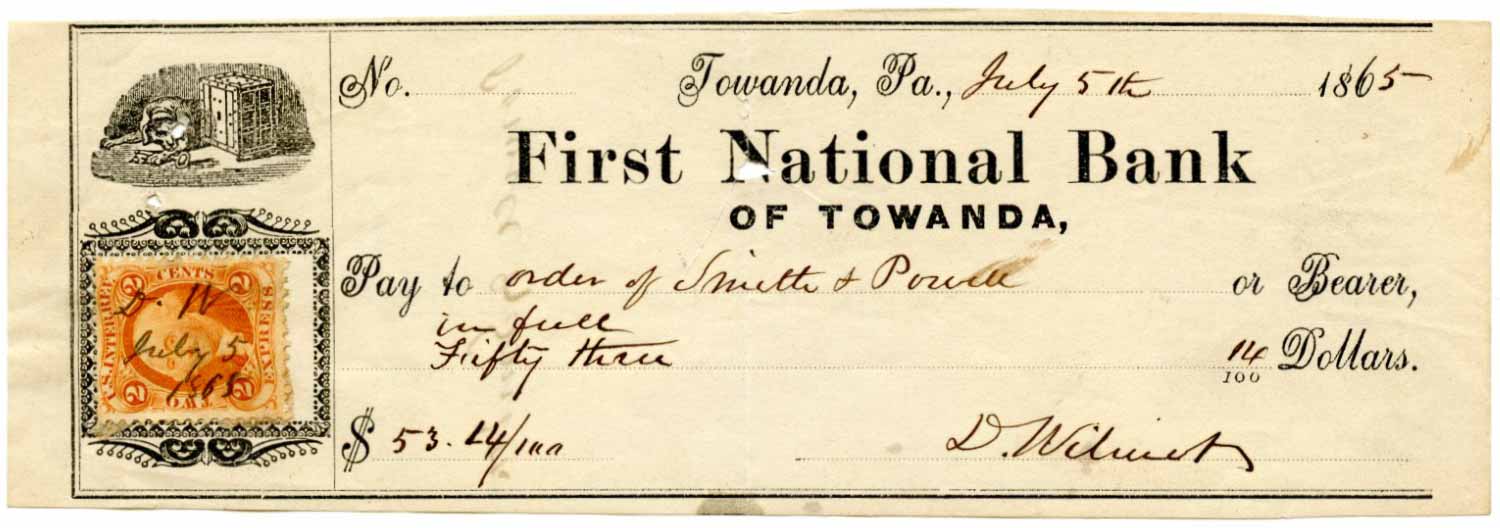 No. Towanda, Pa., July 5th 1865
First National Bank
OF TOWANDA,
Pay to order of Smith & Powell or Bearer,
in full
Fifty three 14/100 Dollars.
$ 53. 14/100 D. Wilmot
U.S. INTER. REV.
2 CENTS 2
EXPRESS
D. W
July 5
1865
2 TWO 2